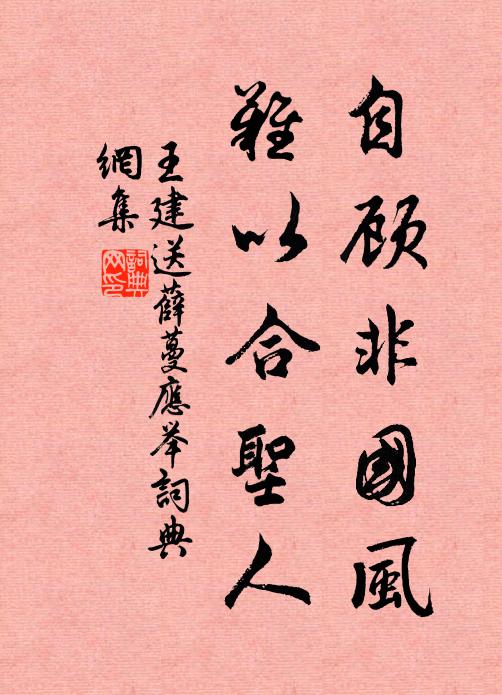 自顾非國風
難以合聖人
王建送薛蔓應举詞典
網集
詞典
网印